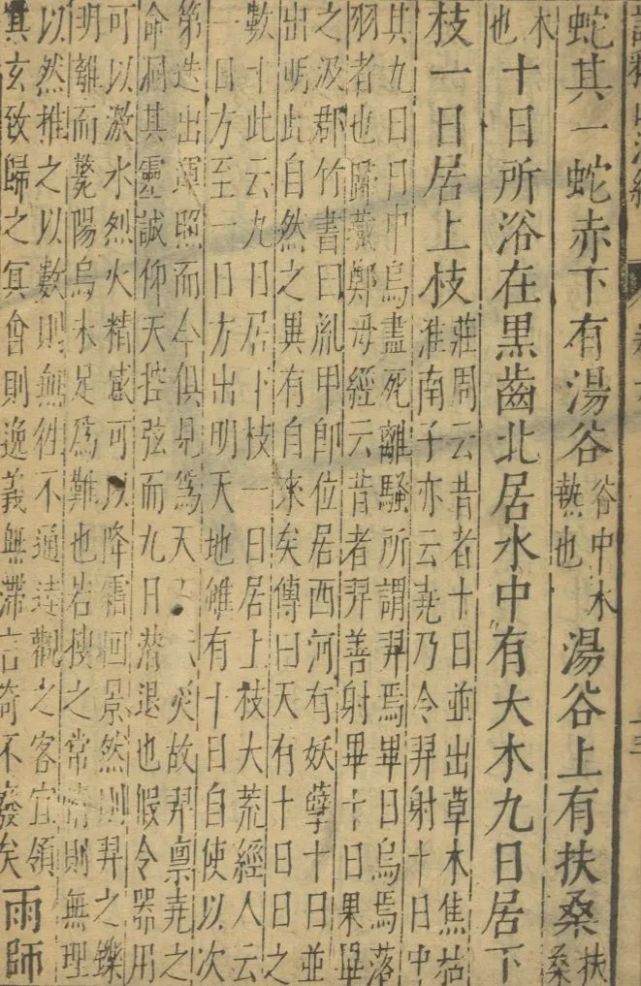 蛇其一蛇赤下有湯谷谷中水熱也湯谷上有扶桑扶桑
木也十日所浴在黑齒北居水中有大木九日居下
枝一日居上枝莊周云昔者十日並出草木焦枯
淮南子亦云堯乃令羿射十日中
其九日日中烏盡死離騷所謂羿焉畢日烏焉落
羽者也歸藏鄭母經云昔者羿善射畢十日果畢
之汲郡竹書曰胤甲即位居西河有妖孽十日並
出明此自然之異有自來矣傳曰天有十日日之
數十此云九日居下枝一日居上枝大荒經人云
一日方至一日方出明天地雖有十日自使以次
第迭出運照而今俱見為天災故羿稟堯之
命洞其靈誠仰天控弦而九日潛退也假令器用
可以激水烈火精感可以降霜回景然則羿之鑠
明離而斃陽烏未足為難也若搜之常情則無理
以然推之以數則無往不通達觀之客宜領
其玄致歸之冥會則逸義無滯言奇不廢矣雨師